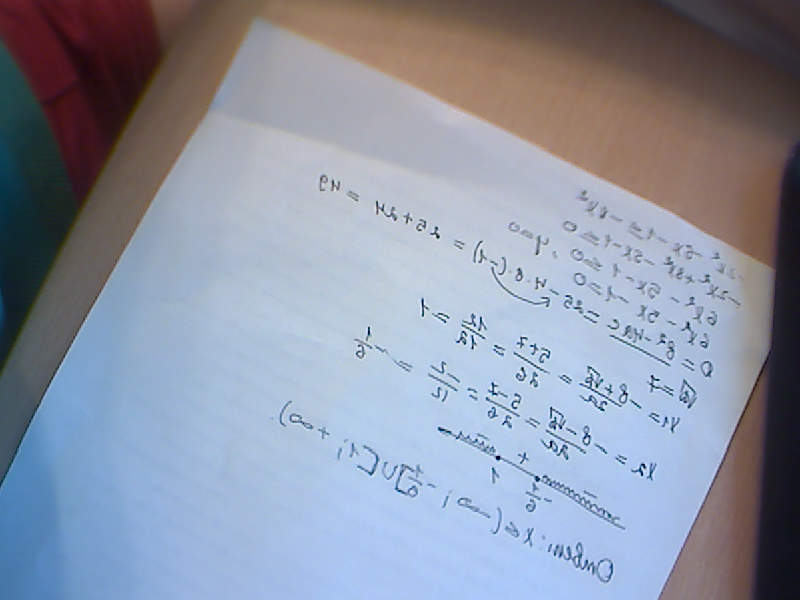 -2x² -5x -1 ≥ -8x²
-2x² +8x² -5x -1 ≥ 0
6x² - 5x -1 ≥ 0, y=0
6x² - 5x -1 = 0
D = b² - 4ac = 25 - 4·6·(-1) = 25+24 = 49
√D = 7
x1 = -b+√D/2a = 5+7/26 = 12/12 = 1
x2 = -b-√D/2a = 5-7/26 = -2/12 = -1/6
+
-1/6 1
Ответ: x∈(-∞; -1/6]∪[1; +∞).